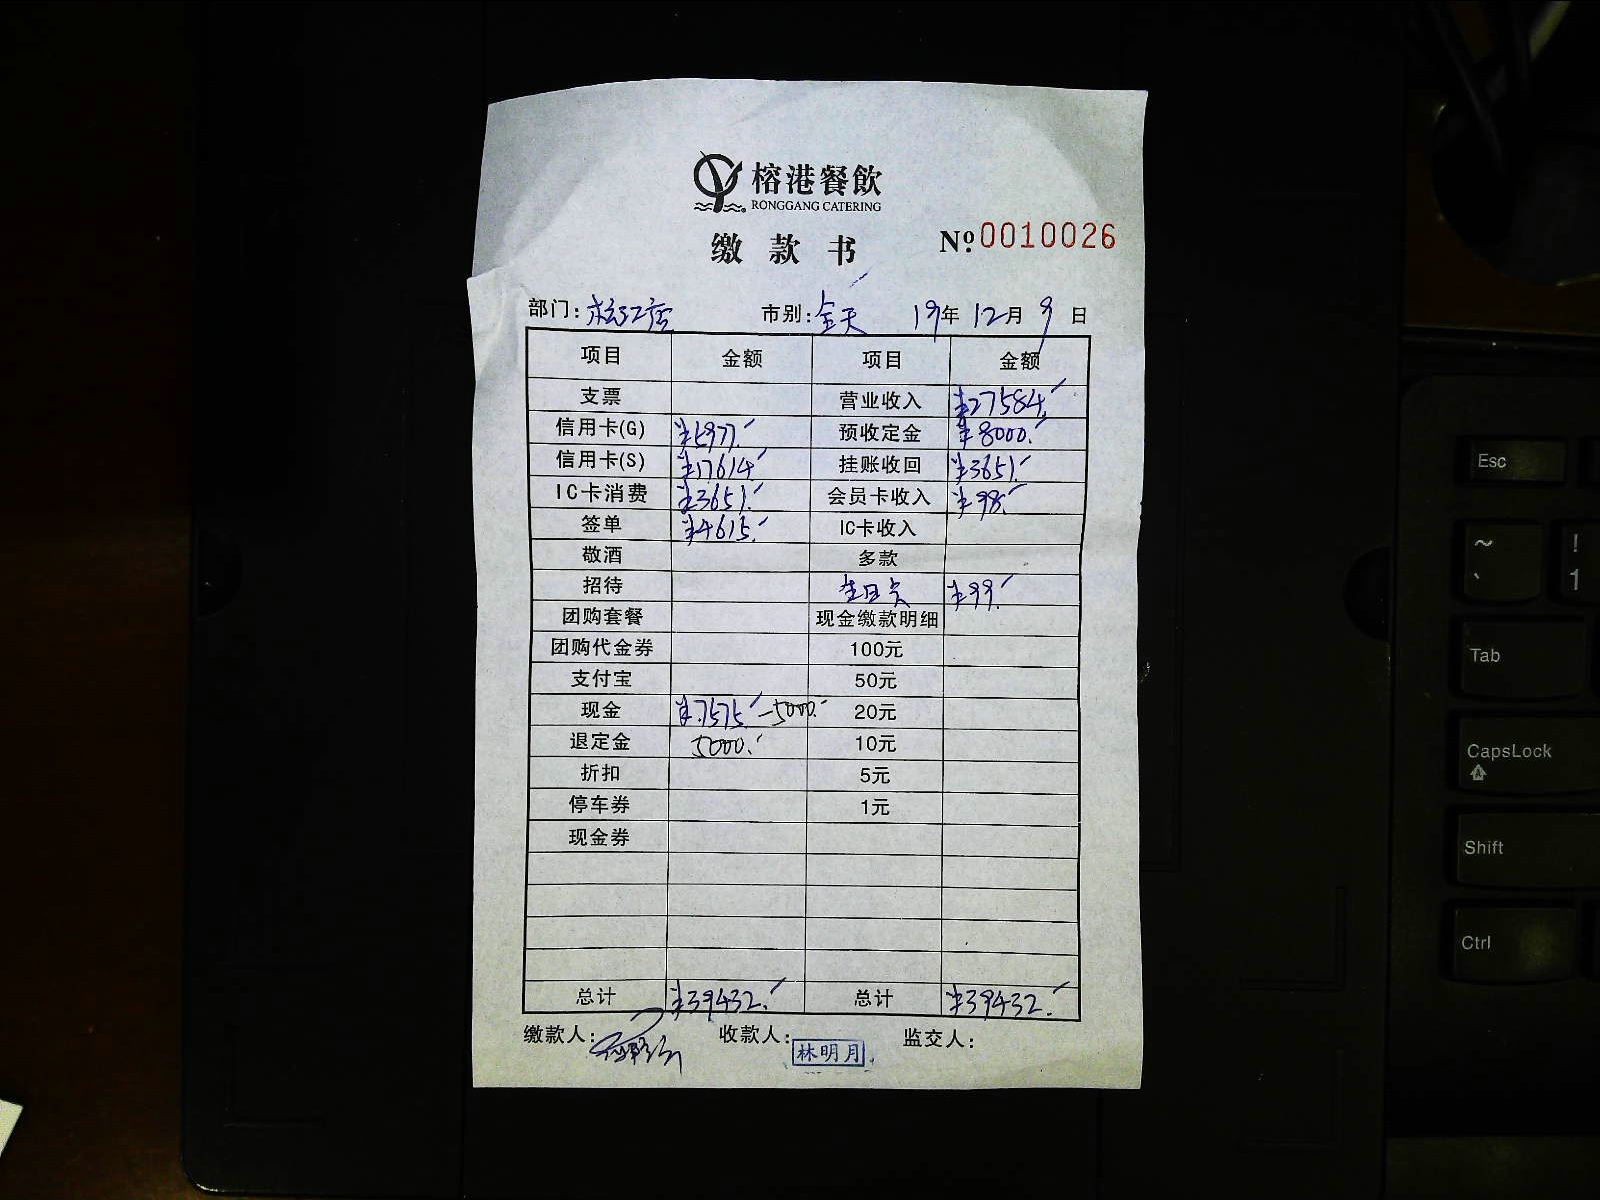 榕港餐飲
RONGGANG CATERING
缴款书 № 0010026
部门: 松江店 市别: 全天 19年 12月 9日
项目 金额 项目 金额
支票 营业收入 ¥27584.
信用卡(G) ¥5977. 预收定金 ¥8000.
信用卡(S) ¥17614 挂账收回 ¥3651.
IC卡消费 ¥3651. 会员卡收入 ¥98.
签单 ¥4615. IC卡收入
敬酒 多款
招待 生日 ¥99.
团购套餐 现金缴款明细
团购代金券 100元
支付宝 50元
现金 ¥7575 -5000. 20元
退定金 5000. 10元
折扣 5元
停车券 1元
现金券
总计 ¥39432. 总计 ¥39432.
缴款人: 收款人: 林明月 监交人:
Esc
~ !
` 1
Tab
CapsLock
Shift
Ctrl